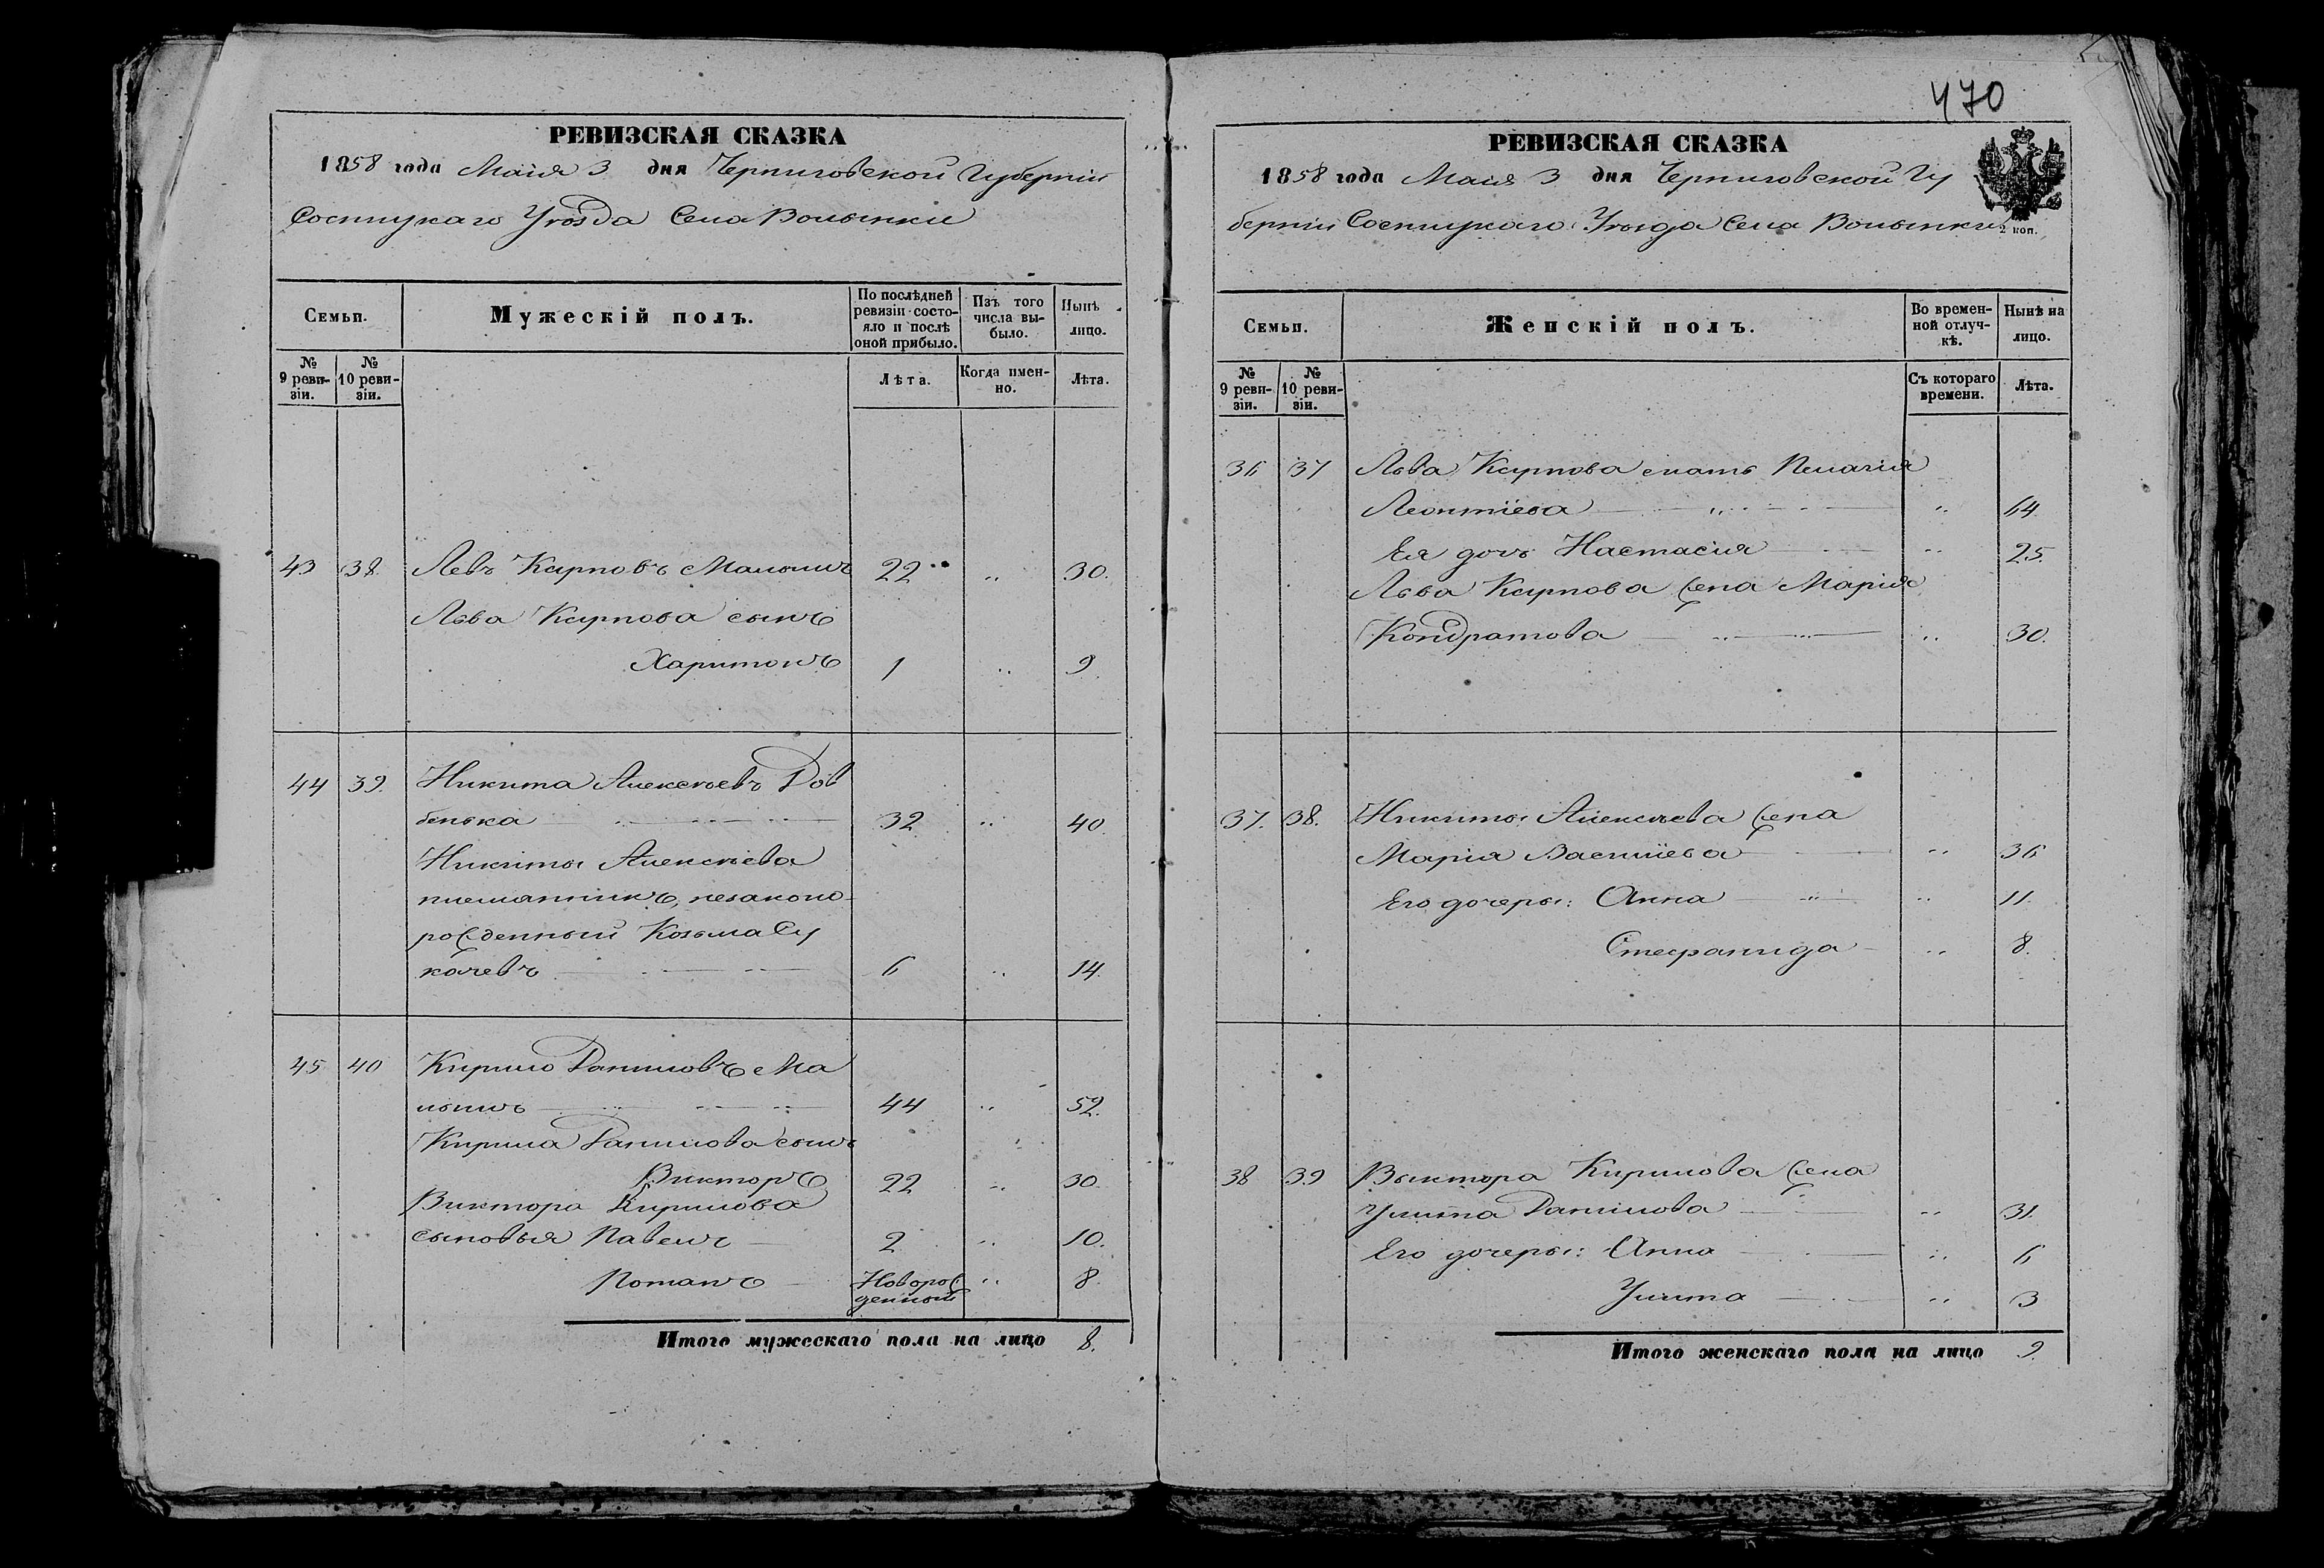 РЕВИЗСКАЯ СКАЗКА
1858 года Маія 3 дня Черниговской Губерніи
Сосницкаго Уѣзда Села Волынки
Семьи.
Мужескій полъ.
По послѣдней ревизіи состояло и послѣ оной прибыло.
Изъ того числа выбыло.
Нынѣ лицо.
№ 9 ревизіи.
№ 10 ревизіи.
Лѣта.
Когда именно.
Лѣта.
43 38. Левъ Карповъ Малышъ 22 „ 30.
Льва Карпова сынъ
Харитонъ 1 „ 9.
44 39. Никита Алексѣевъ Дов
бенька 32 „ 40.
Никиты Алексѣева
племянникъ, незаконо-
рожденный Козьма Су
качевъ 6 „ 14.
45 40 Кирило Даниловъ Ма
лышъ 44 „ 52.
Кирила Данилова сынъ
Викторъ 22 „ 30.
Виктора Кирилова
сыновья Павелъ 2 „ 10.
Романъ Новорож
денный „ 8.
Итого мужескаго пола на лицо 8.
470
РЕВИЗСКАЯ СКАЗКА
1858 года Маія 3 дня Черниговской Гу
берніи Сосницкаго Уѣзда Села Волынки
2 коп.
Семьи.
Женскій полъ.
Во временной отлучкѣ.
Нынѣ на лицо.
№ 9 ревизіи.
№ 10 ревизіи.
Съ котораго времени.
Лѣта.
36 37 Льва Карпова мать Пелагія
Леонтіева „ 64.
Ея дочь Настасія „ 25.
Льва Карпова жена Марія
Кондратова „ 30.
37. 38. Никиты Алексѣева жена
Марія Василіева „ 36
Его дочеры: Анна „ 11.
Стефанида „ 8.
38 39 Выктора Кирилова жена
Улита Данилова „ 31.
Его дочеры: Анна „ 6
Улита „ 3
Итого женскаго пола на лицо 9.